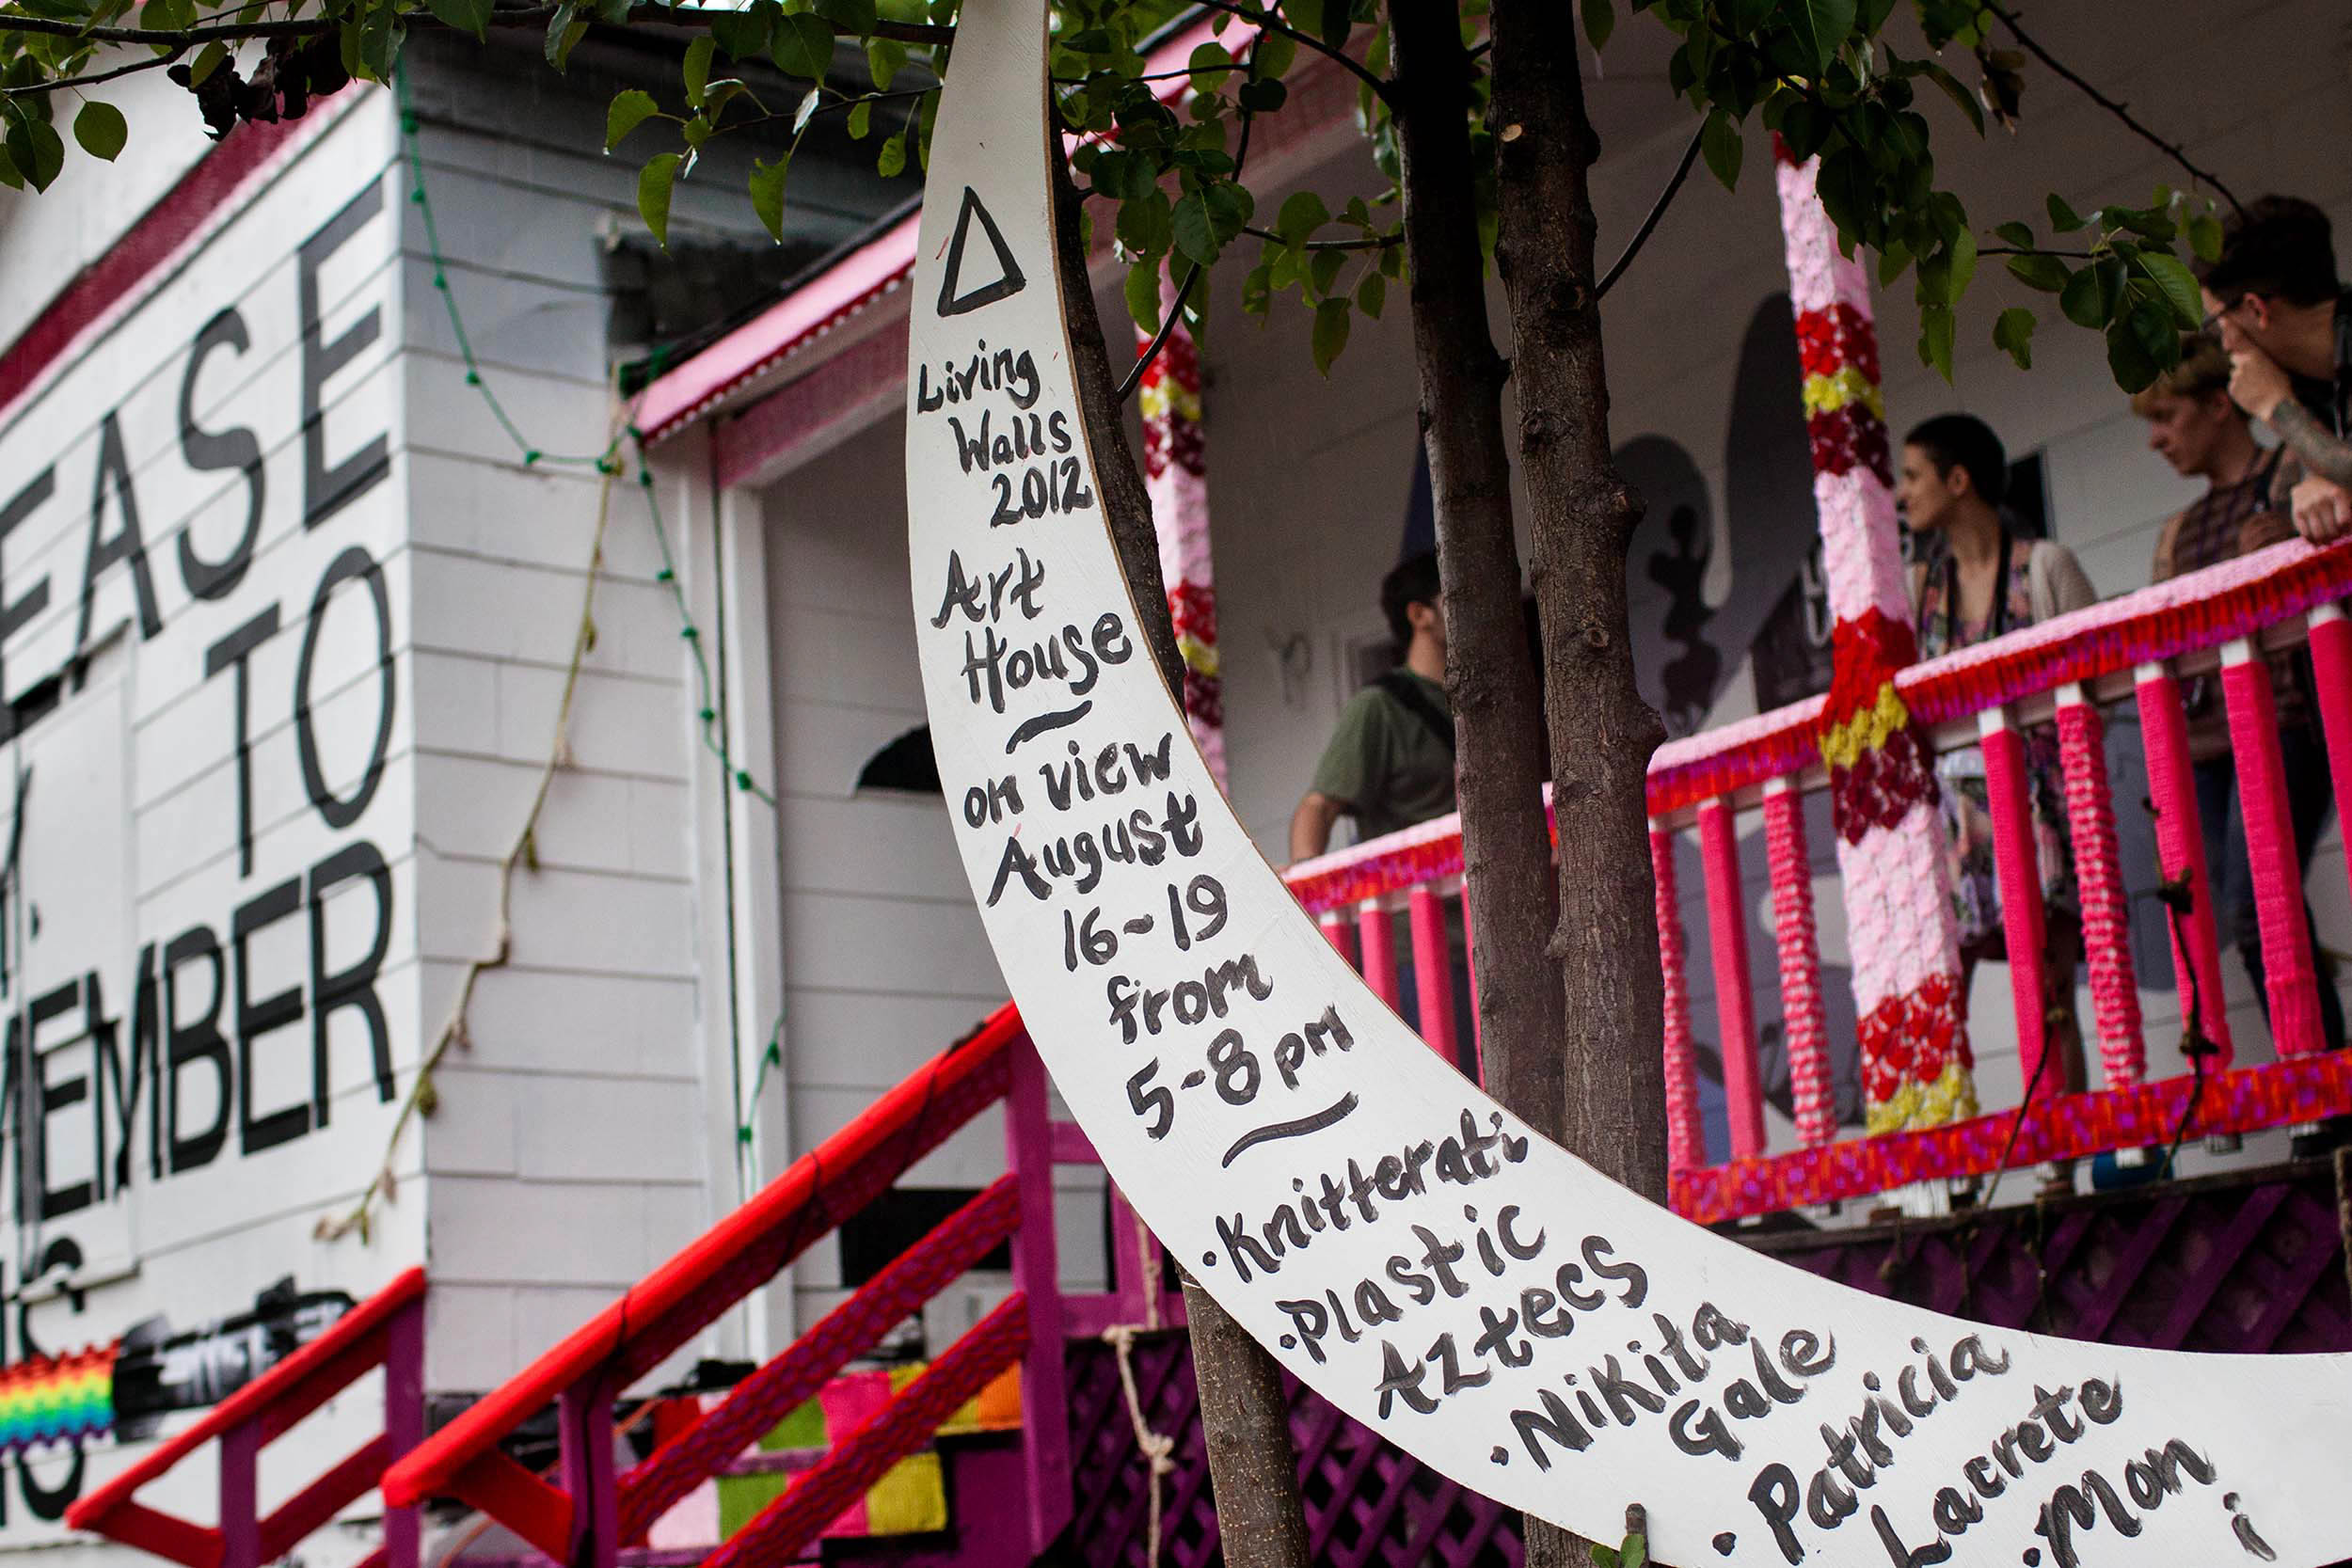 EASE
TO
EMBER
Living
Walls
2012
Art
House
on view
August
16-19
from
5-8pm
•Knitterati
•Plastic
Aztecs
•Nikita
Gale
•Patricia
Lacrete
•Mon